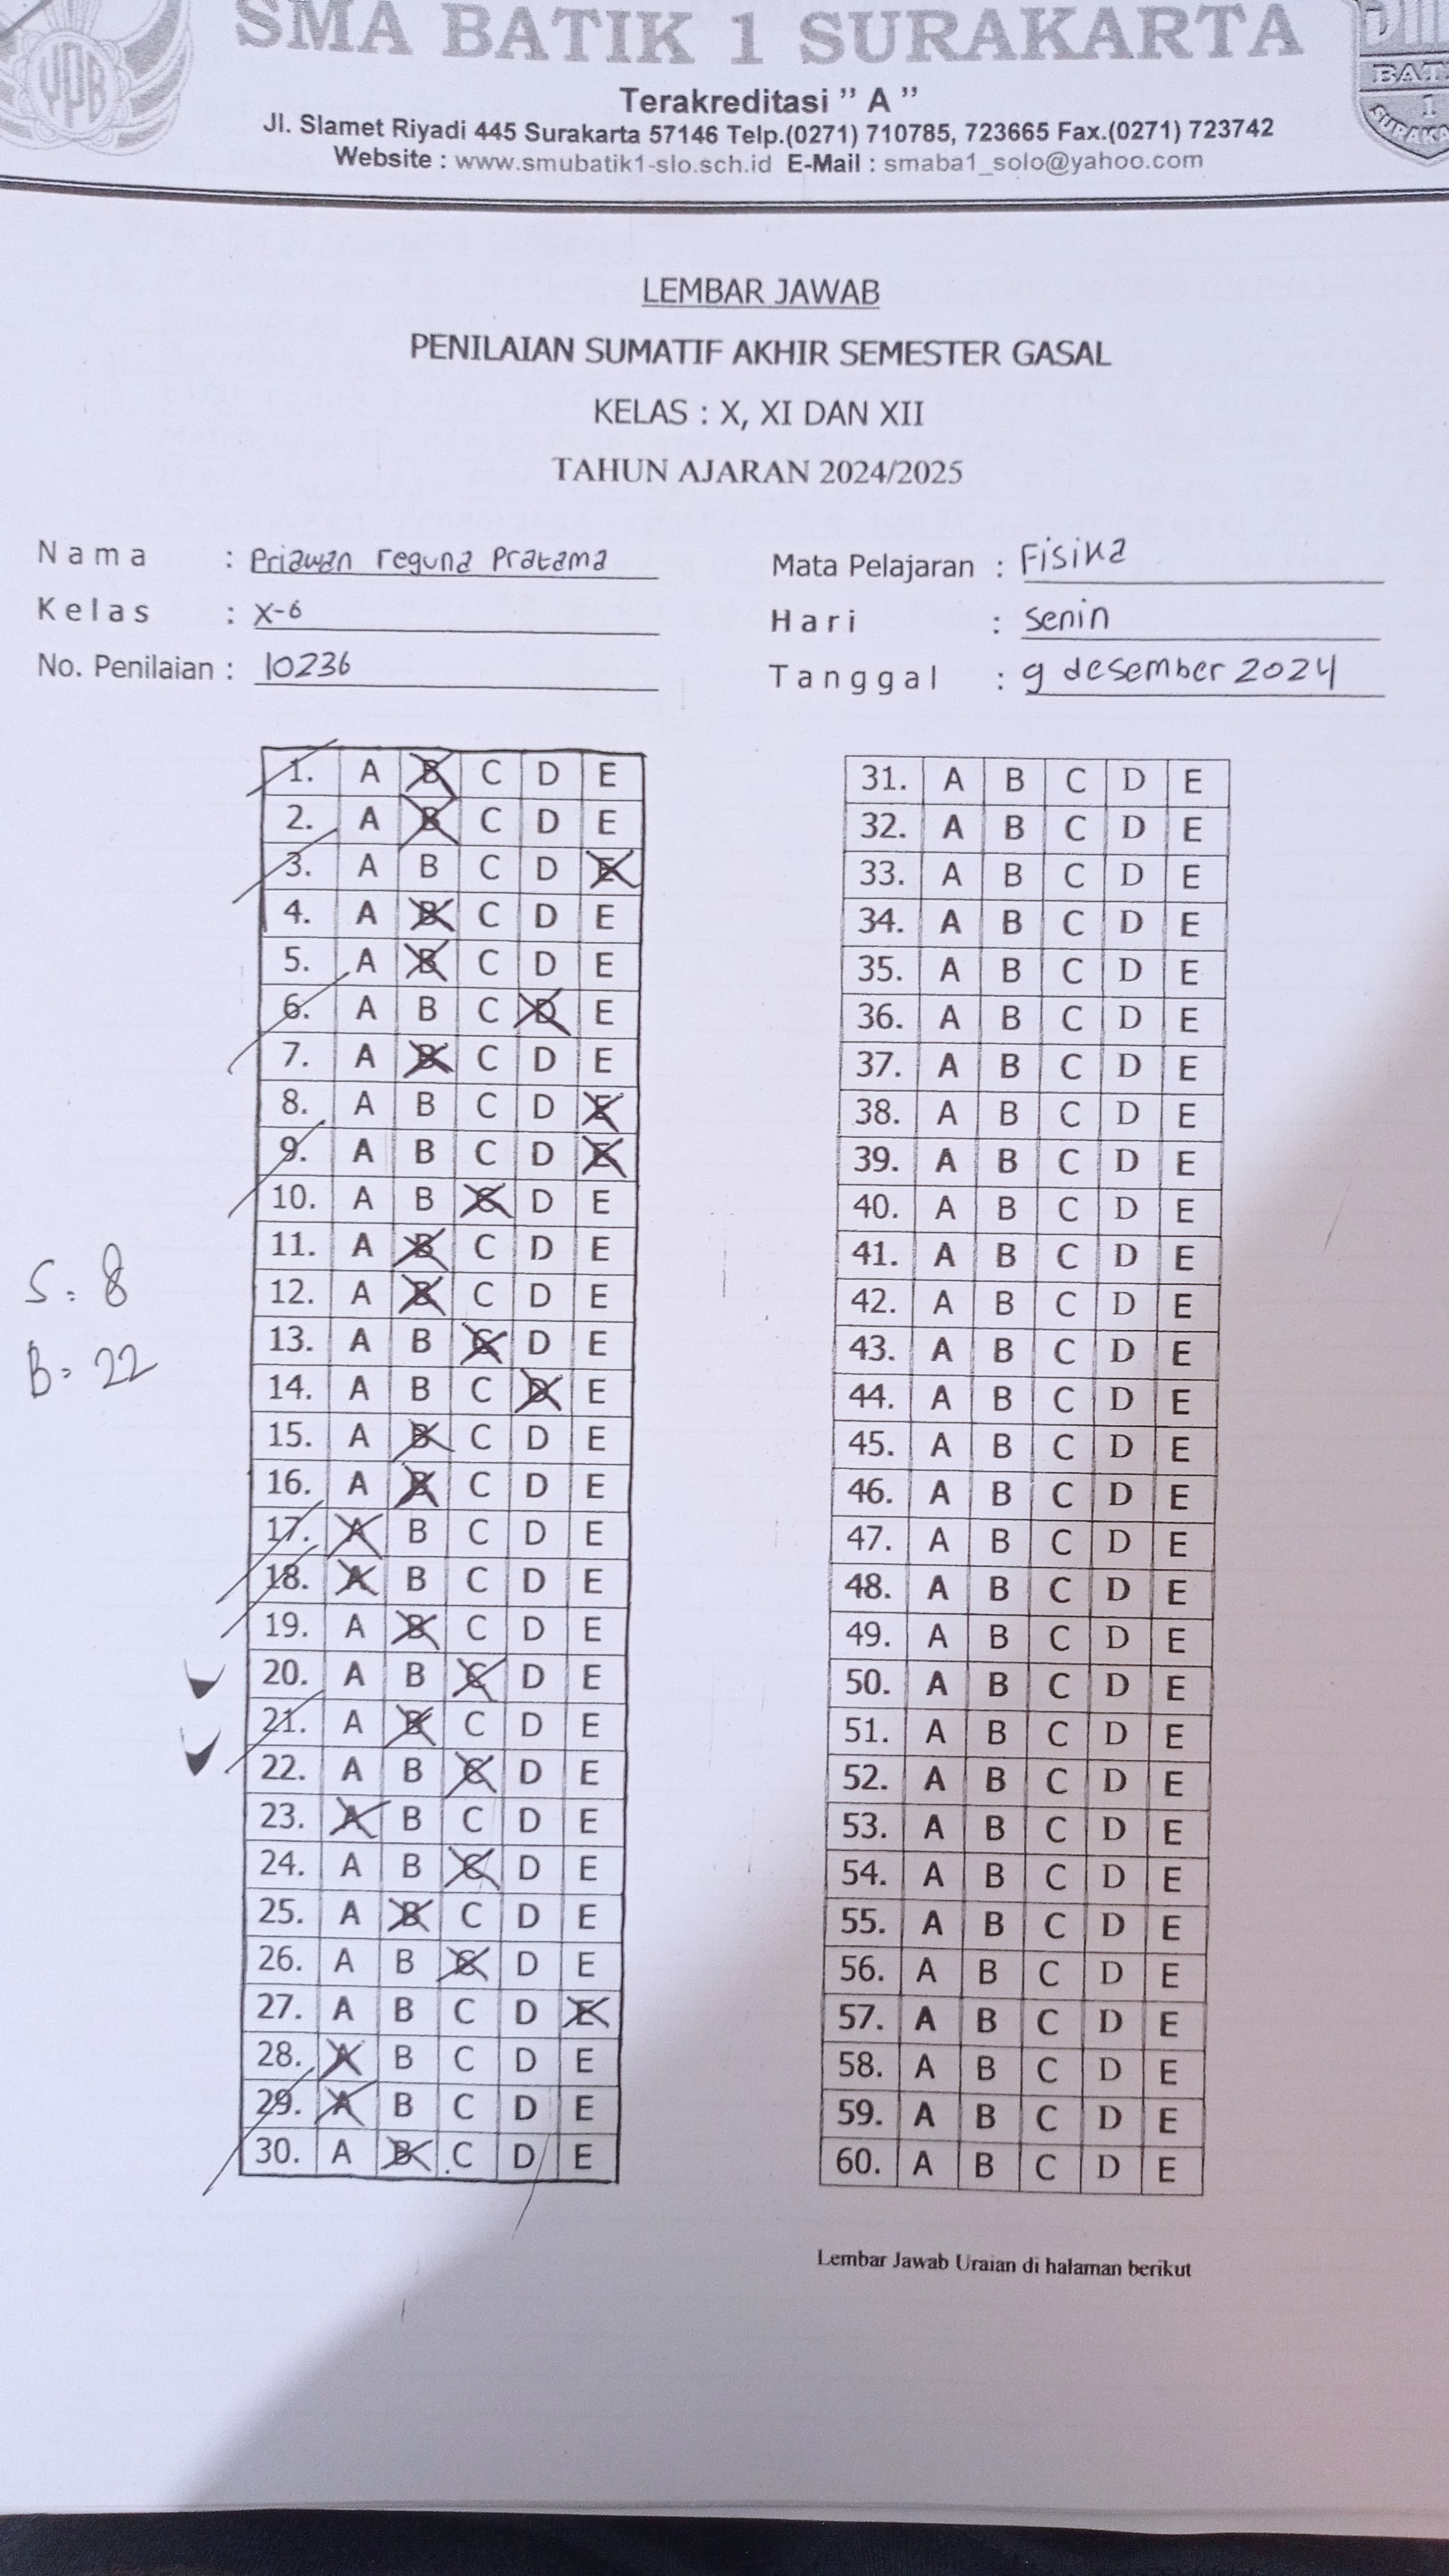 SMA BATIK 1 SURAKARTA
Terakreditasi " A "
Jl. Slamet Riyadi 445 Surakarta 57146 Telp.(0271) 710785, 723665 Fax.(0271) 723742
Website : www.smubatik1-slo.sch.id E-Mail : smaba1_solo@yahoo.com
YPB
BAT
1
LEMBAR JAWAB
PENILAIAN SUMATIF AKHIR SEMESTER GASAL
KELAS : X, XI DAN XII
TAHUN AJARAN 2024/2025
Nama : Priawan reguna Pratama
Kelas : X-6
No. Penilaian : 10236
Mata Pelajaran : Fisika
Hari : Senin
Tanggal : 9 desember 2024
1. A B C D E
2. A B C D E
3. A B C D E
4. A B C D E
5. A B C D E
6. A B C D E
7. A B C D E
8. A B C D E
9. A B C D E
10. A B C D E
11. A B C D E
12. A B C D E
13. A B C D E
14. A B C D E
15. A B C D E
16. A B C D E
17. A B C D E
18. A B C D E
19. A B C D E
20. A B C D E
21. A B C D E
22. A B C D E
23. A B C D E
24. A B C D E
25. A B C D E
26. A B C D E
27. A B C D E
28. A B C D E
29. A B C D E
30. A B C D E
S = 8
B = 22
31. A B C D E
32. A B C D E
33. A B C D E
34. A B C D E
35. A B C D E
36. A B C D E
37. A B C D E
38. A B C D E
39. A B C D E
40. A B C D E
41. A B C D E
42. A B C D E
43. A B C D E
44. A B C D E
45. A B C D E
46. A B C D E
47. A B C D E
48. A B C D E
49. A B C D E
50. A B C D E
51. A B C D E
52. A B C D E
53. A B C D E
54. A B C D E
55. A B C D E
56. A B C D E
57. A B C D E
58. A B C D E
59. A B C D E
60. A B C D E
Lembar Jawab Uraian di halaman berikut